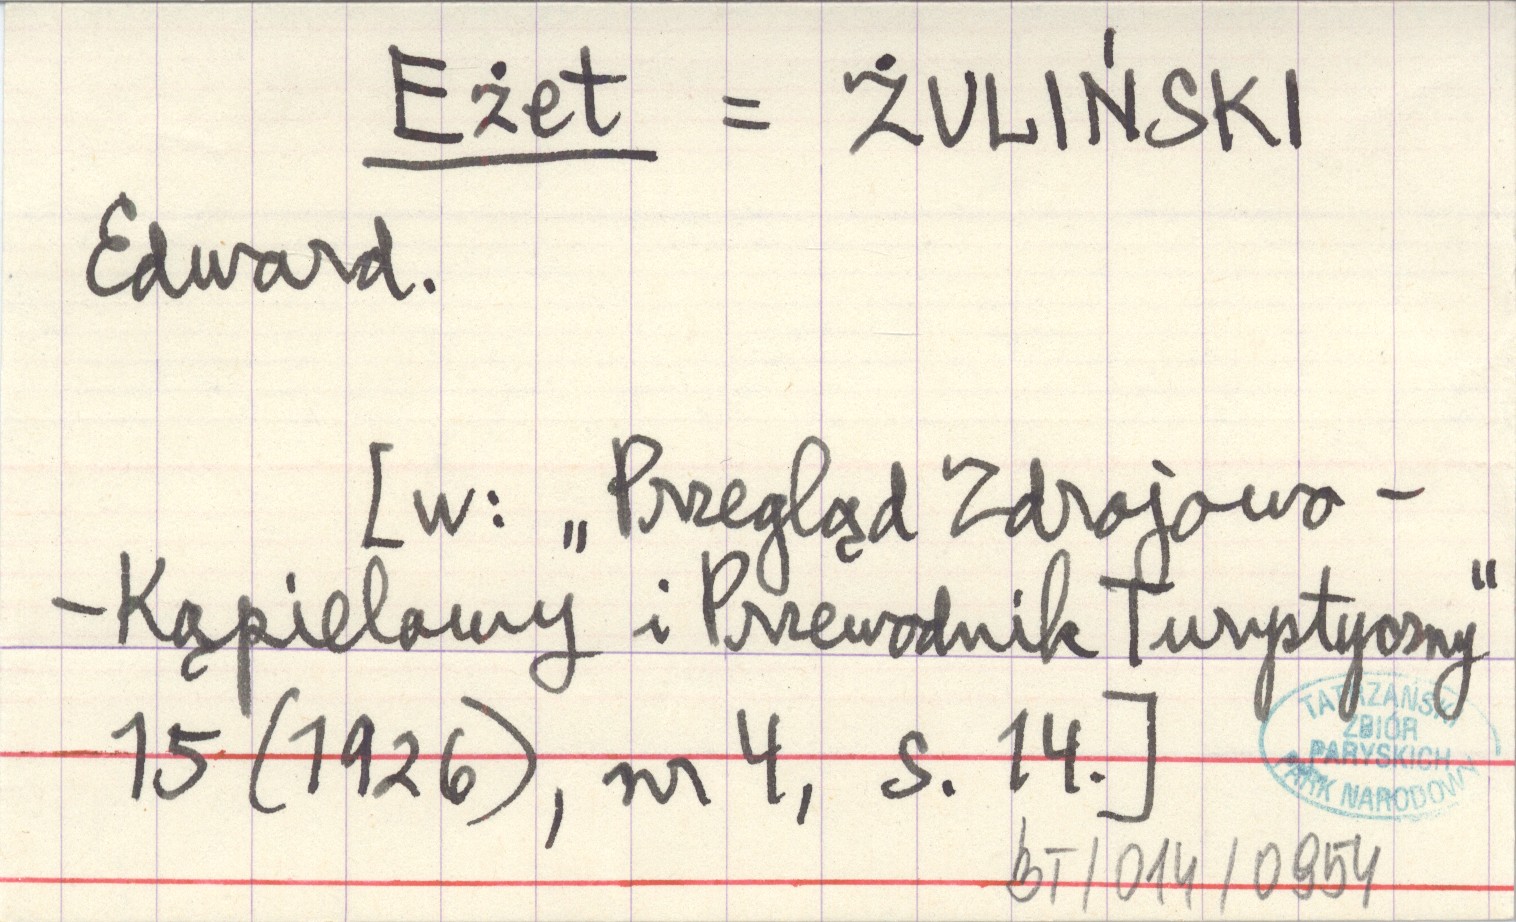 Eżet = ŻULIŃSKI
Edward.
[w: „Przegląd Zdrojowo-
-Kąpielowy i Przewodnik Turystyczny"
15 (1926), nr 4, s. 14.]
TATRZAŃSKI
ZBIÓR
PARYSKICH
PARK NARODOWY
BT/014/0954